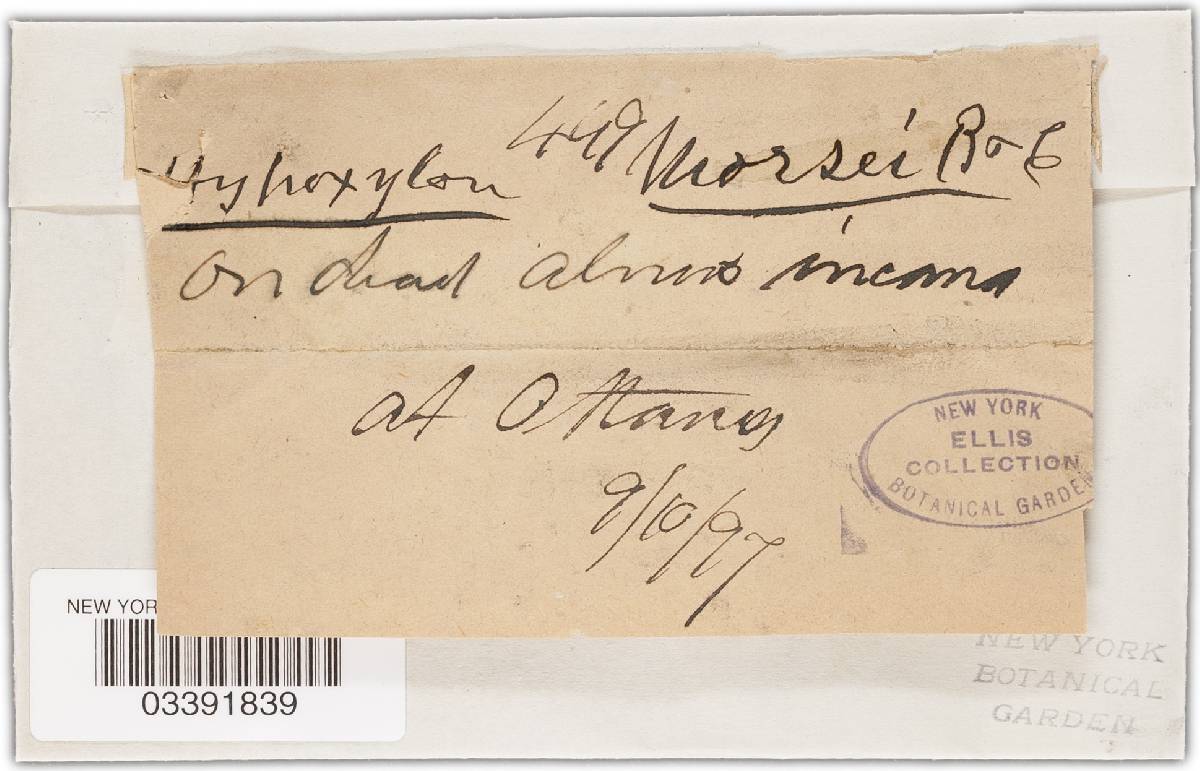 449
Hypoxylon Morsei B & C
on dead alnus incana
at Ottawa
9/10/97
NEW YORK
ELLIS
COLLECTION
BOTANICAL GARDEN
NEW YOR
03391839
NEW YORK
BOTANICAL
GARDEN